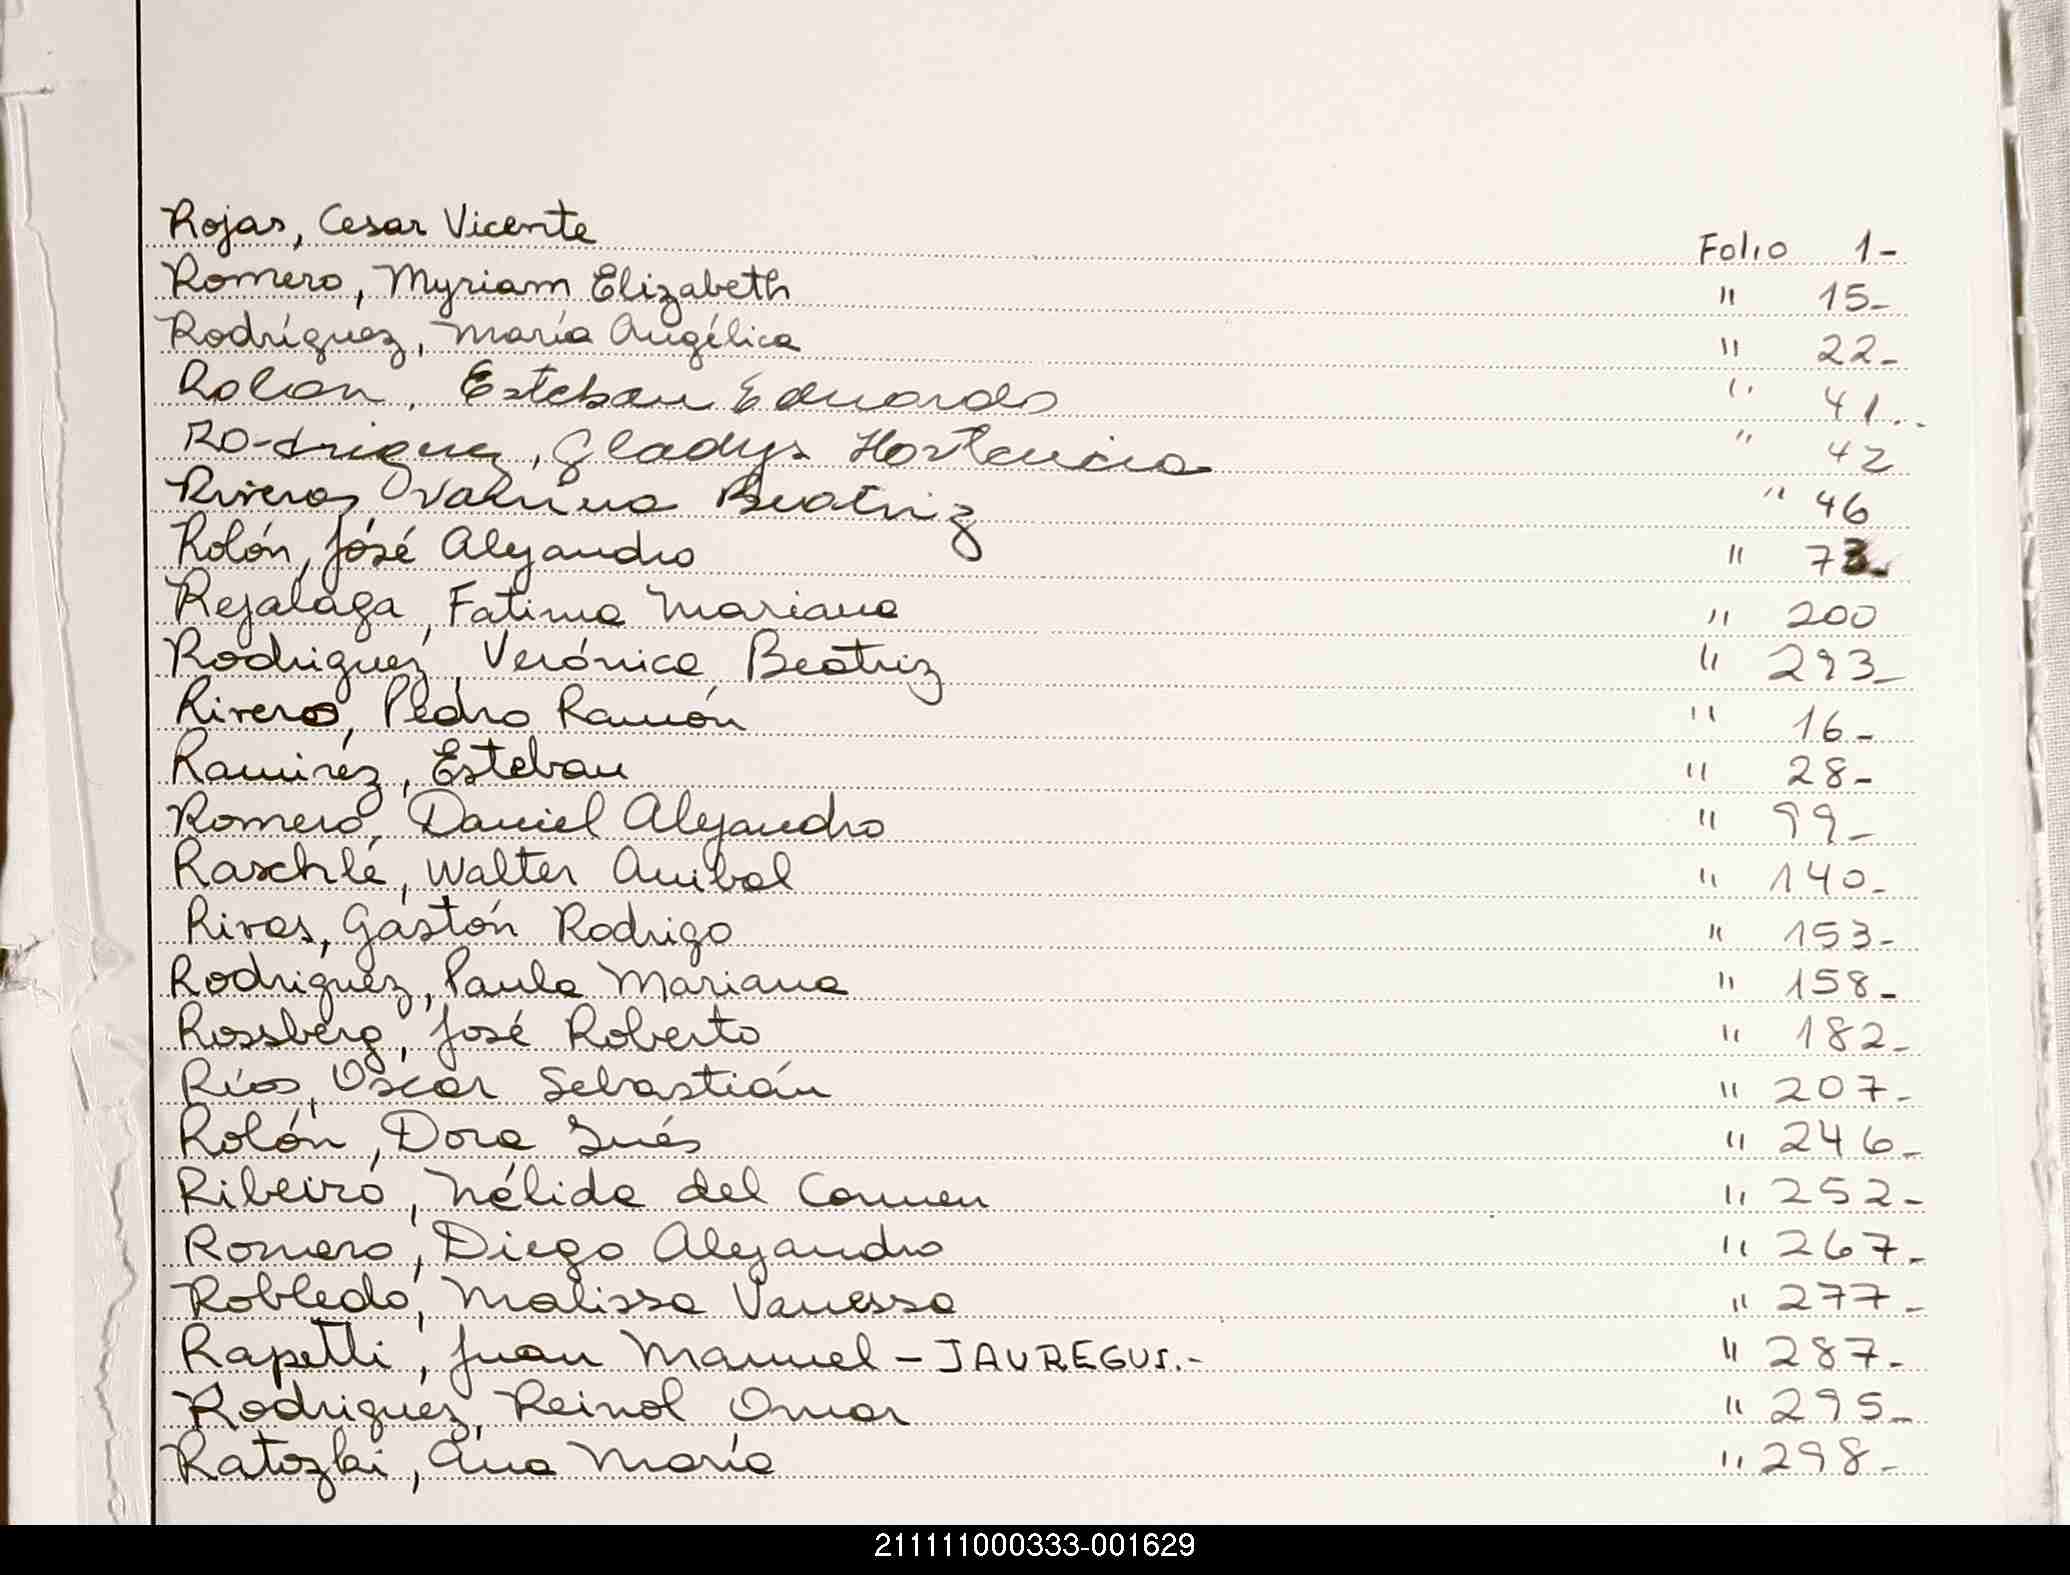 Rojas, Cesar Vicente Folio 1-
Romero, Myriam Elizabeth " 15-
Rodríguez, María Angélica " 22-
Rolon, Esteban Eduardo " 41-
Rodriguez, Gladys Hortencia " 42
Riveros Beatriz " 46
Rolón, José Alejandro " 73-
Rejalaga, Fatima Mariana " 200
Rodriguez, Verónica Beatriz " 293-
Rivero, Pedro Ramón " 16-
Ramirez, Esteban " 28-
Romero, Daniel Alejandro " 99-
Raschle, Walter Anibal " 140-
Rivas, Gastón Rodrigo " 153-
Rodriguez, Paula Mariana " 158-
Rossberg, José Roberto " 182-
Ríos, Oscar Sebastián " 207-
Rolón, Dora Inés " 246-
Ribeiro, Nélida del Carmen " 252-
Romero, Diego Alejandro " 267-
Robledo, Malissa Vanessa " 277-
Rapetti, Juan Manuel - JAUREGUI.- " 287-
Rodriguez, Reinol Omar " 295-
Ratozki, Ana María " 298-
211111000333-001629